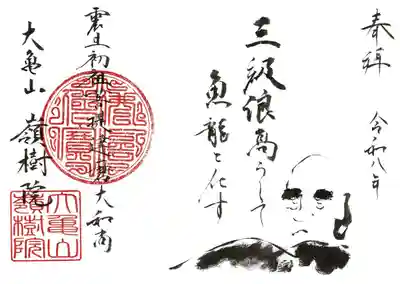 奉拝 令和八年
三級浪高うして
魚龍と化す
震旦初祖菩提達磨大和尚
大亀山 嶺樹院
大亀山
嶺樹院